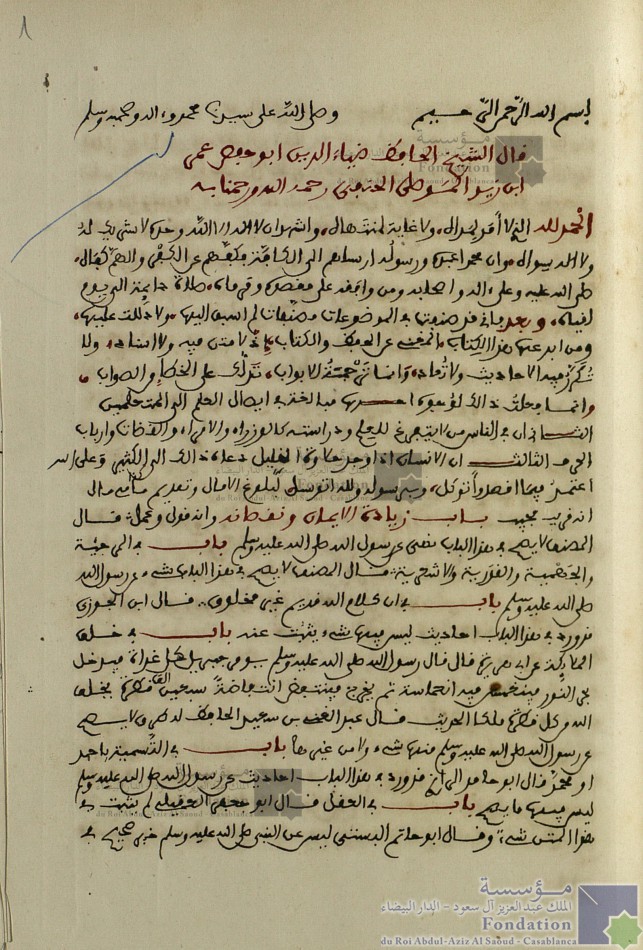 بسم الله الرحمن الرحيم وصلى الله على سيدنا محمد وءاله وصحبه وسلم
قال الشيخ الحافظ ضياء الدين ابو حفص عمر
ابن زيد الموصلي الحنفي رحمه الله ورحمنا به
الحمد لله الذي لا أمد لمداه ولا غاية لمنتهاه واشهد ان لا اله الا الله وحده لا شريك له
ولا اله سواه وان محمدا عبده ورسوله ارسله الى الكافة فكفهم عن الكفر والهم كفاه
صلى الله عليه وعلى ءاله واصحابه ومن وافقه على مقصده صلاة دايمة الى يوم
لقياه وبعد فاني قد صنفت في الموضوعات مصنفات لم اسبق اليها ولا دللت عليها
ومن ابدعها هذا الكتاب المغني عن الحفظ والكتاب اذ لا متن فيه ولا اسناد ولا
تكرر فيه الاحاديث ولا تعاد وانما ترجمة الابواب تدلك على الخطإ والصواب
وانما جعلت ذلك لوجوه احدها مبالغة في ايصال العلم الى المتعلمين
الثاني ان في الناس من لا يتفرغ للعلم ودراسته كالوزراء والامراء والقضاة وارباب
الحرف الثالث ان الانسان اذا وجد حلاوة القليل دعاه ذلك الى الكثير وعلى الله
اعتمد فيما اقصد واتوكل وبرسوله ولله اتوسل لبلوغ الآمال
انه قريب مجيب باب زيادة الايمان ونقصانه وانه قول وعمل قال
المصنف لا يصح في هذا الباب شيء عن رسول الله صلى الله عليه وسلم باب في المرجئة
والجهمية والقدرية والاشعرية قال المصنف لا يصح في هذا الباب شيء عن رسول الله
صلى الله عليه وسلم باب في ان كلام الله قديم غير مخلوق قال ابن الجوزي
قد ورد في هذا الباب احاديث ليس فيها شيء يثبت عنه باب في خلق
الملائكة عن ابي هريرة قال قال رسول الله صلى الله عليه وسلم يومر جبريل كل غداة فيدخل
بحر النور فينغمس فيه انغماسة ثم يخرج فينتفض انتفاضة سبعين الف قطرة يخلق
الله من كل قطرة ملكا الحديث قال عبد الغني بن سعيد الحافظ له طرق لا يصح
عن رسول الله صلى الله عليه وسلم منها شيء ولا من غيرها باب في التسمية باحمد
او محمد قال ابو حاتم الرازي قد ورد في هذا الباب احاديث عن رسول الله صلى الله عليه وسلم
ليس فيها ما يصح باب في العقل قال ابو جعفر العقيلي لم يثبت في
هذا المتن شيء وقال ابو حاتم البستي ليس عن النبي صلى الله عليه وسلم خبر صحيح في
مؤسسة
الملك عبد العزيز آل سعود - الدار البيضاء
Fondation
du Roi Abdul-Aziz Al Saoud - Casablanca